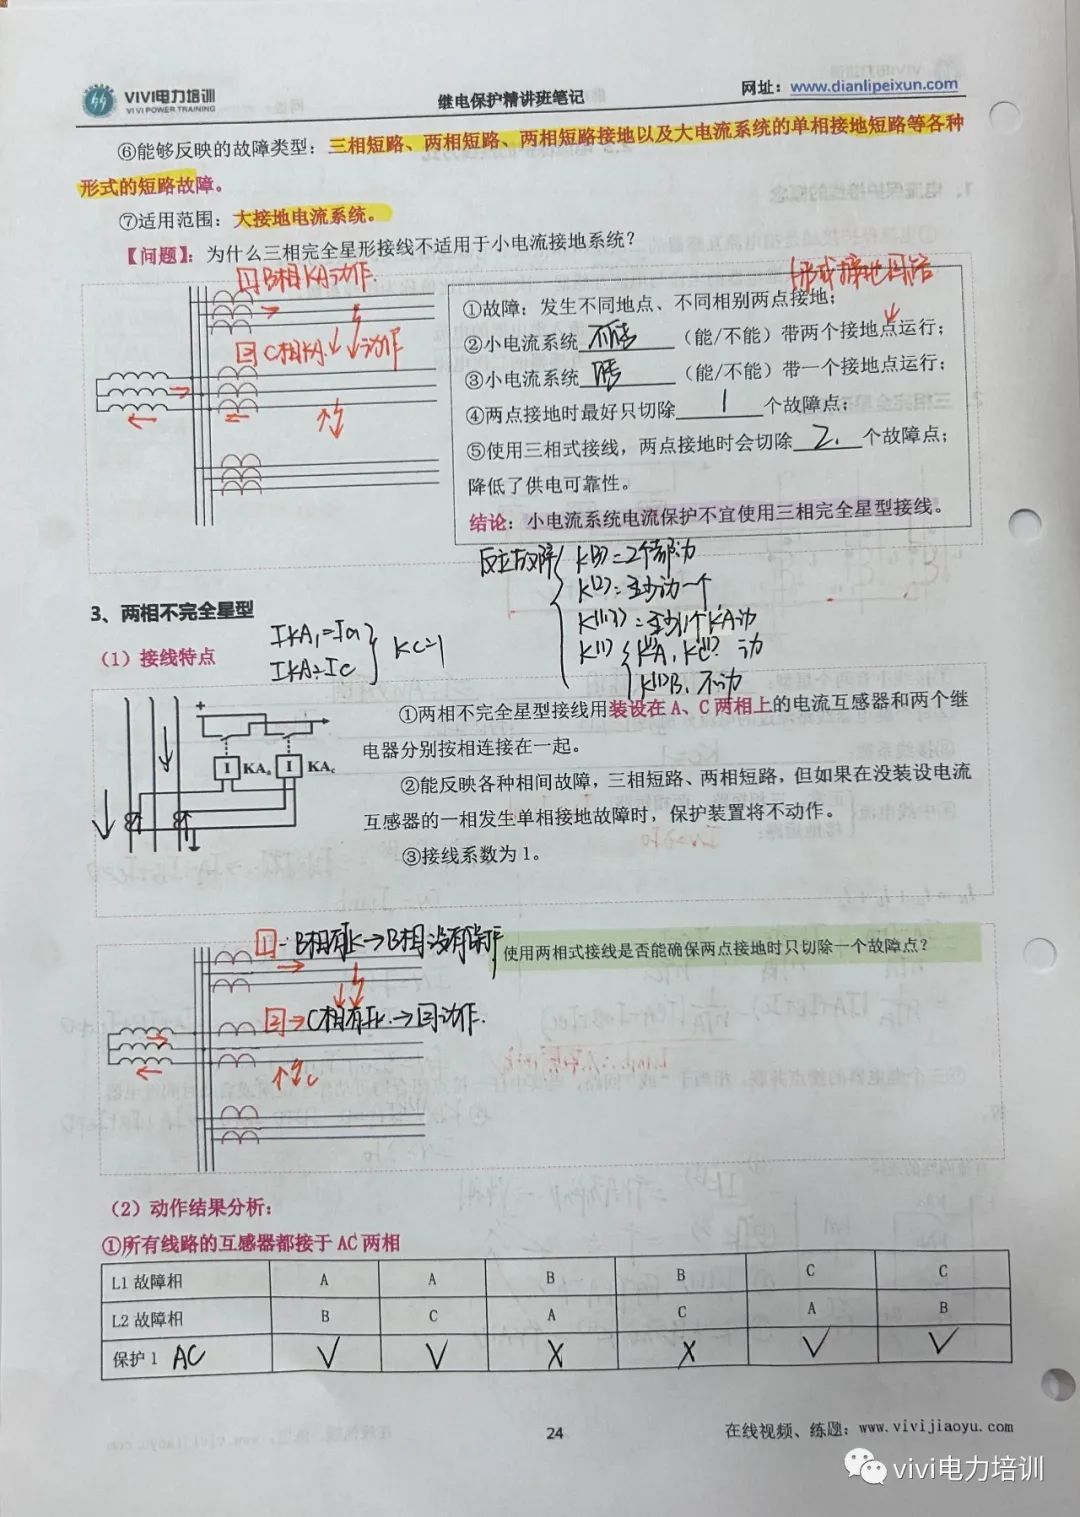 VIVI电力培训
VIVI POWER TRAINING
继电保护精讲班笔记
网址：www.dianlipeixun.com
⑥能够反映的故障类型：三相短路、两相短路、两相短路接地以及大电流系统的单相接地短路等各种
形式的短路故障。
⑦适用范围：大接地电流系统。
【问题】：为什么三相完全星形接线不适用于小电流接地系统？
1 B相KA动作.
形成接地回路
2 C相KA. 动作
①故障：发生不同地点、不同相别两点接地；
②小电流系统 不能 （能/不能）带两个接地点运行；
③小电流系统 能 （能/不能）带一个接地点运行；
④两点接地时最好只切除 1 个故障点；
⑤使用三相式接线，两点接地时会切除 2. 个故障点；
降低了供电可靠性。
结论：小电流系统电流保护不宜使用三相完全星型接线。
反应故障 K(3)=2个都动
K(2)：至少动一个
K(1,1)=至少1个KA动
K(1) K(1)A、K(1)C 动
K(1)B、不动
3、两相不完全星型
IKA1=Ia
IKA2=Ic
Kc=1
（1）接线特点
①两相不完全星型接线用装设在 A、C 两相上的电流互感器和两个继
电器分别按相连接在一起。
+
I KAa I KAc
②能反映各种相间故障，三相短路、两相短路，但如果在没装设电流
互感器的一相发生单相接地故障时，保护装置将不动作。
③接线系数为 1。
1 - B相有Ik→B相没有保护
使用两相式接线是否能确保两点接地时只切除一个故障点？
2 → C相有Ik.→2动作.
C
（2）动作结果分析：
①所有线路的互感器都接于 AC 两相
L1 故障相 A A B B C C
L2 故障相 B C A C A B
保护 1 AC √ √ X X √ √
24
在线视频、练题：www.vivijiaoyu.com
vivi电力培训